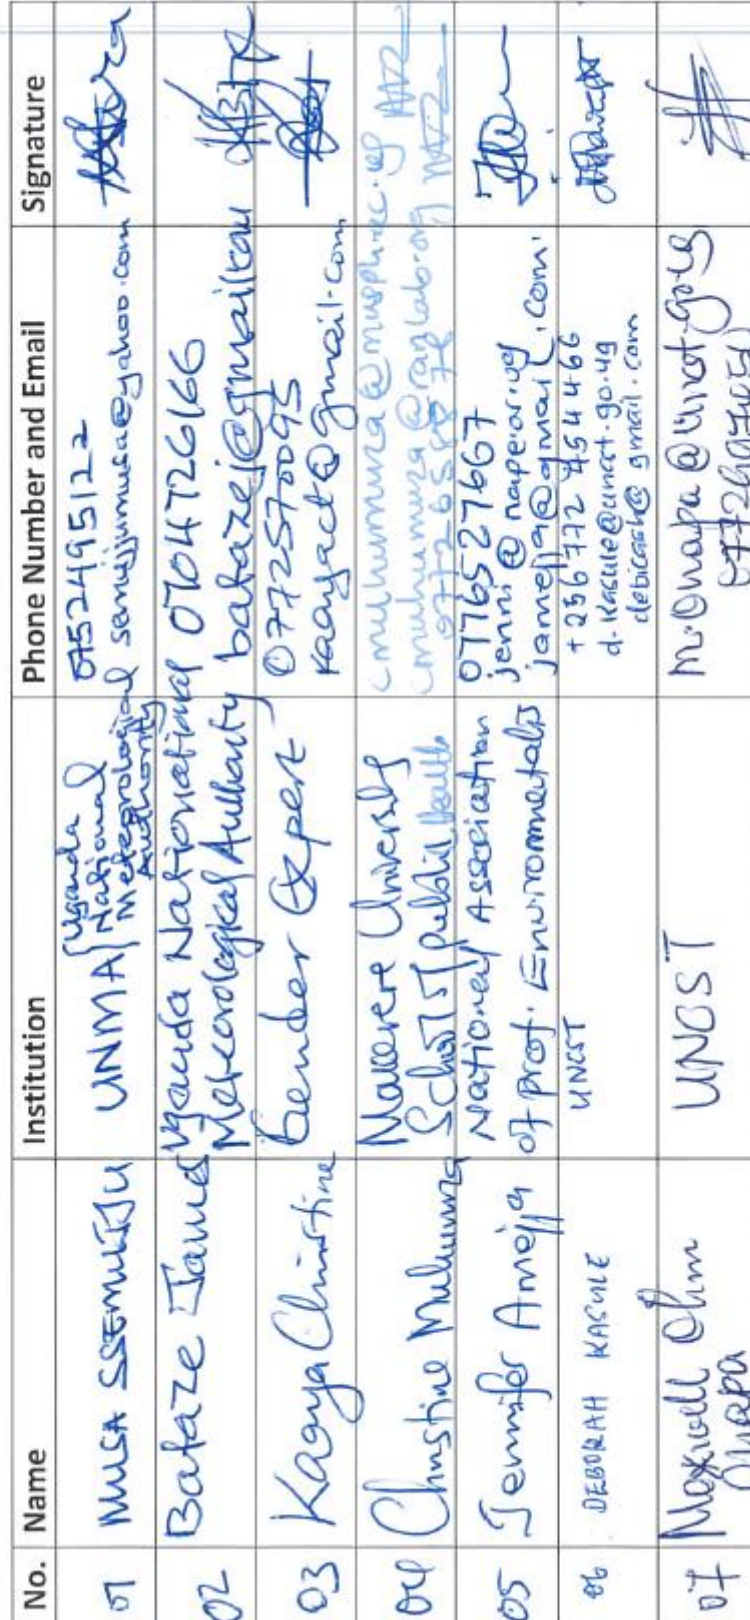 No. Name Institution Phone Number and Email Signature
01 MUSA SSEMUJJU UNMA (Uganda National Meteorological Authority 0752495122
semujjumusa@yahoo.com
02 Bataze James Uganda National 0704726166
Meteorological Authority batazej@gmail.com
03 Kaaya Christine Gender Expert 0772570095
kaayact@gmail.com
04 Christine Muhumuza Makerere University cmuhumuza@musph.ac.ug
School of public health cmuhumuza@ranlab.org
05 Jennifer Amejja National Association 0776527667
of prof. Environmetalis jenni@nape.or.ug
jamejja@gmail.com.
06 DEBORAH KASULE UNCST +256772 454466
d.kasule@uncst.go.ug
debicask@gmail.com
07 Maxwell Otim UNCST m.onapa@uncst.go.ug
Onapa